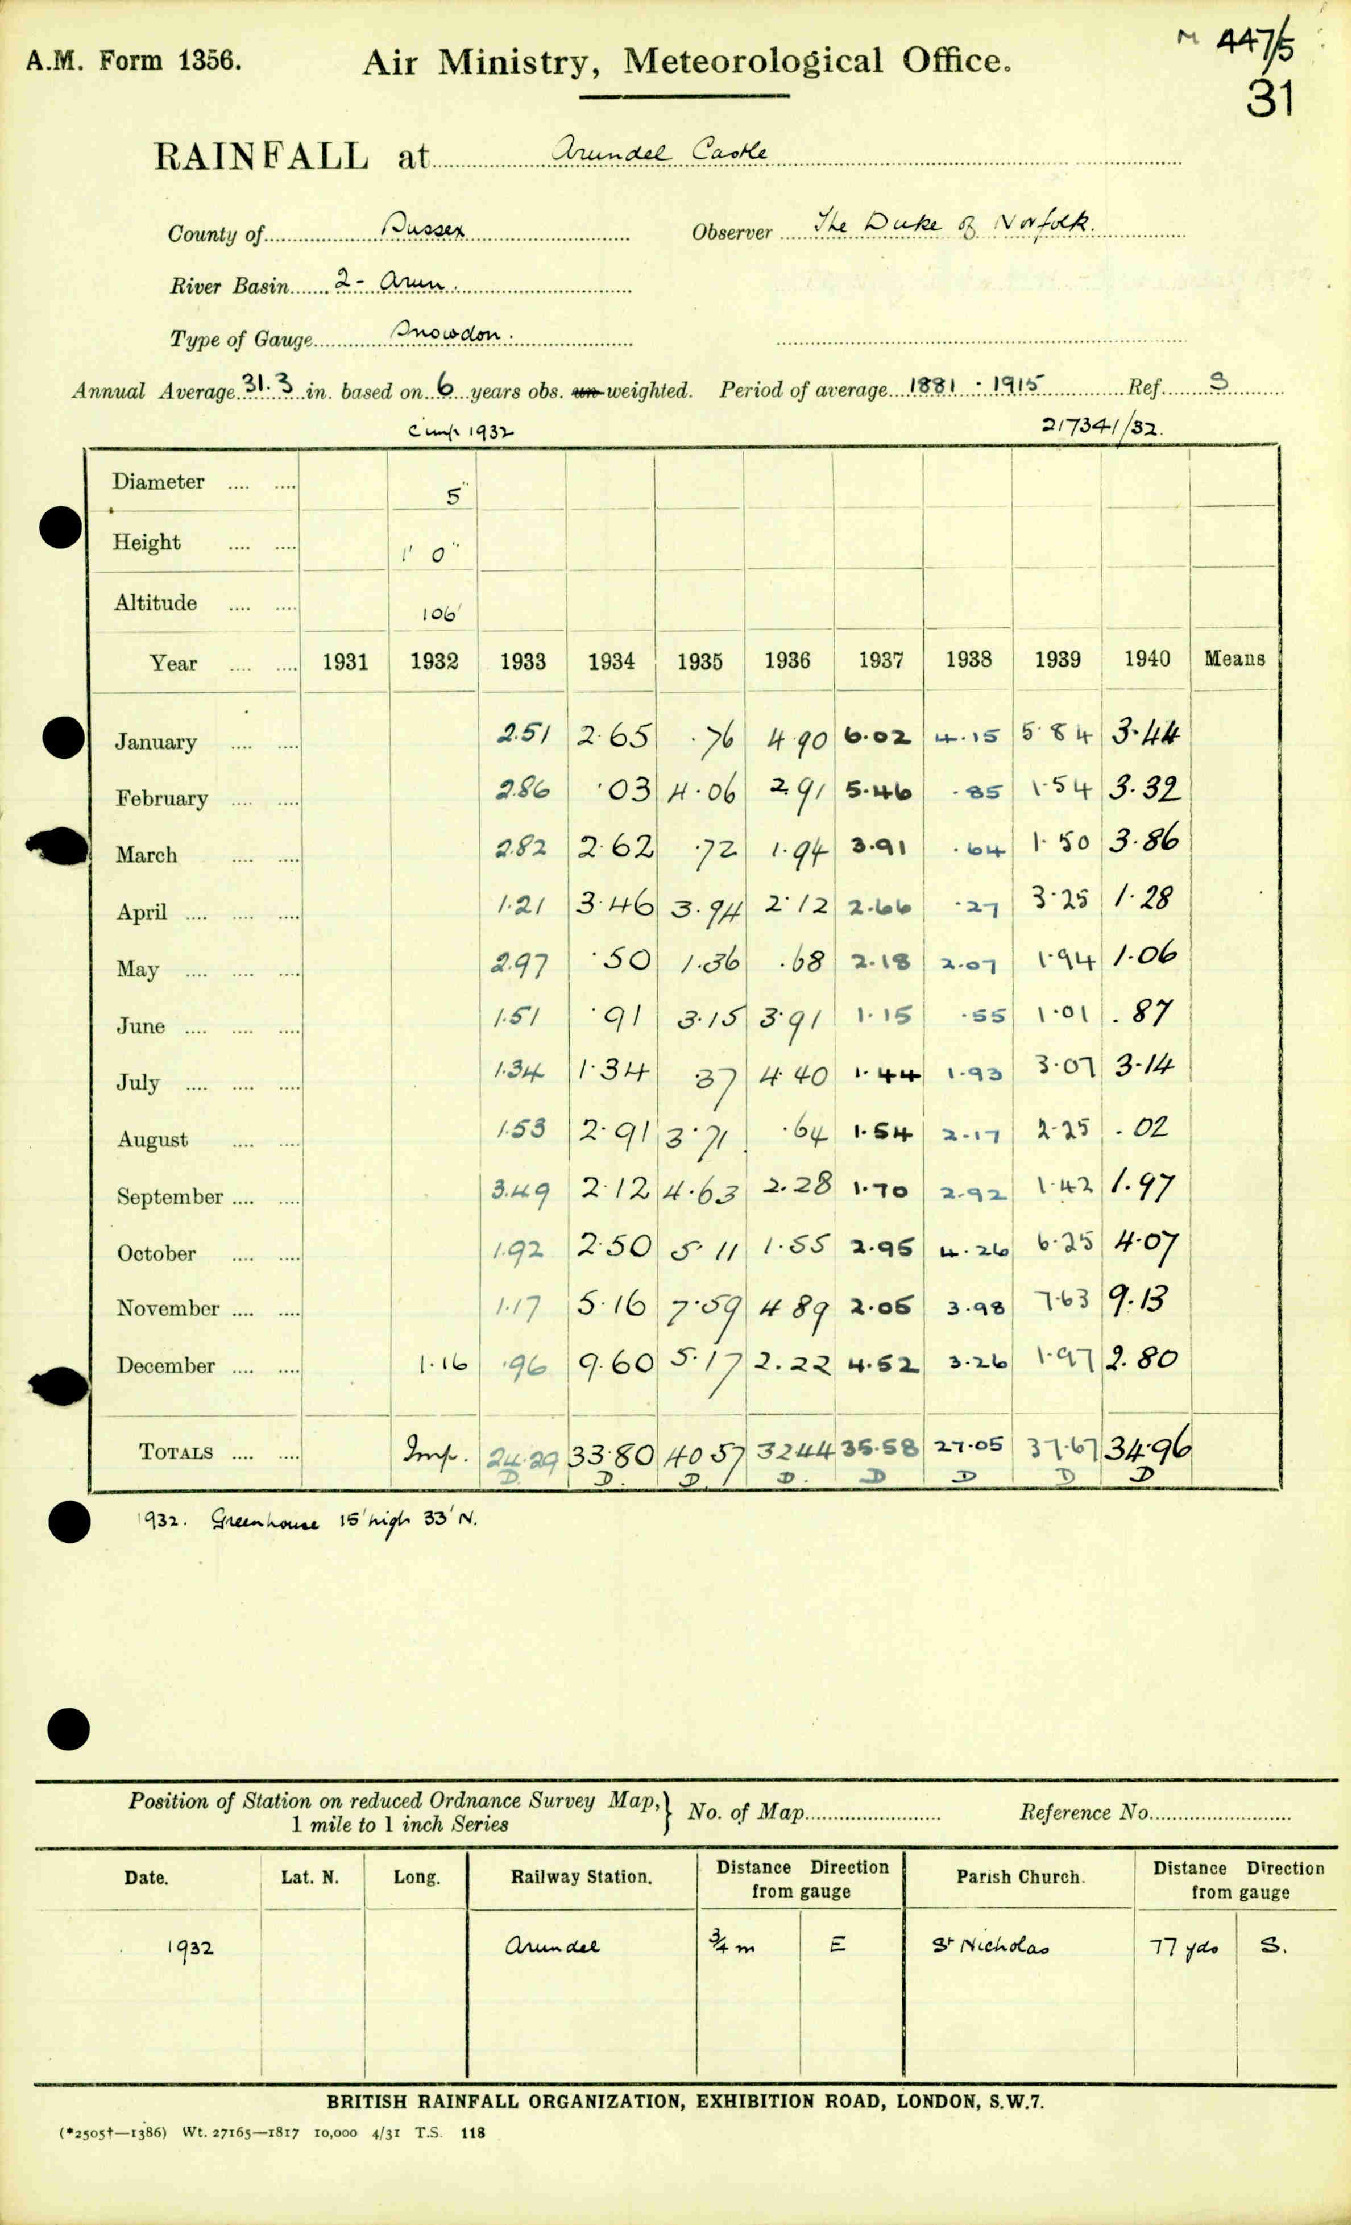 A.M. Form 1356.
Air Ministry, Meteorological Office.
M 447/5
31
RAINFALL at Arundel Castle
County of Sussex Observer The Duke of Norfolk.
River Basin 2 - Arun.
Type of Gauge Snowdon.
Annual Average 31.3 in. based on 6 years obs. un-weighted. Period of average 1881 - 1915 Ref. S
1932 217341/32.
Diameter 5"
Height 1' 0"
Altitude 106'
Year 1931 1932 1933 1934 1935 1936 1937 1938 1939 1940 Means
January 2.51 2.65 .76 4.90 6.02 4.15 5.84 3.44
February 2.86 .03 4.06 2.91 5.46 .85 1.54 3.32
March 2.82 2.62 .72 1.94 3.91 .64 1.50 3.86
April 1.21 3.46 3.94 2.12 2.66 .27 3.25 1.28
May 2.97 .50 1.36 .68 2.18 2.07 1.94 1.06
June 1.51 .91 3.15 3.91 1.15 .55 1.01 .87
July 1.34 1.34 .37 4.40 1.44 1.93 3.07 3.14
August 1.53 2.91 3.71 .64 1.54 2.17 2.25 .02
September 3.49 2.12 4.63 2.28 1.70 2.92 1.42 1.97
October 1.92 2.50 5.11 1.55 2.95 4.26 6.25 4.07
November 1.17 5.16 7.59 4.89 2.05 3.98 7.63 9.13
December 1.16 .96 9.60 5.17 2.22 4.52 3.26 1.97 2.80
TOTALS Imp. 24.29 33.80 40.57 32.44 35.58 27.05 37.67 34.96
D. D. D. D. D D D D
1932. Greenhouse 15' high 33' N.
Position of Station on reduced Ordnance Survey Map, 1 mile to 1 inch Series } No. of Map Reference No.
Date. Lat. N. Long. Railway Station. Distance Direction from gauge Parish Church. Distance Direction from gauge
1932 Arundel 3/4 m E St Nicholas 77 yds S.
BRITISH RAINFALL ORGANIZATION, EXHIBITION ROAD, LONDON, S.W.7.
(*2505†—1386) Wt. 27165—1817 10,000 4/31 T.S. 118